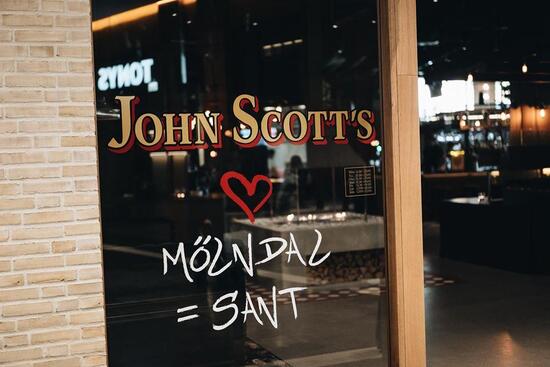 TONYS
JOHN SCOTT'S
MÖLNDAL
= SANT